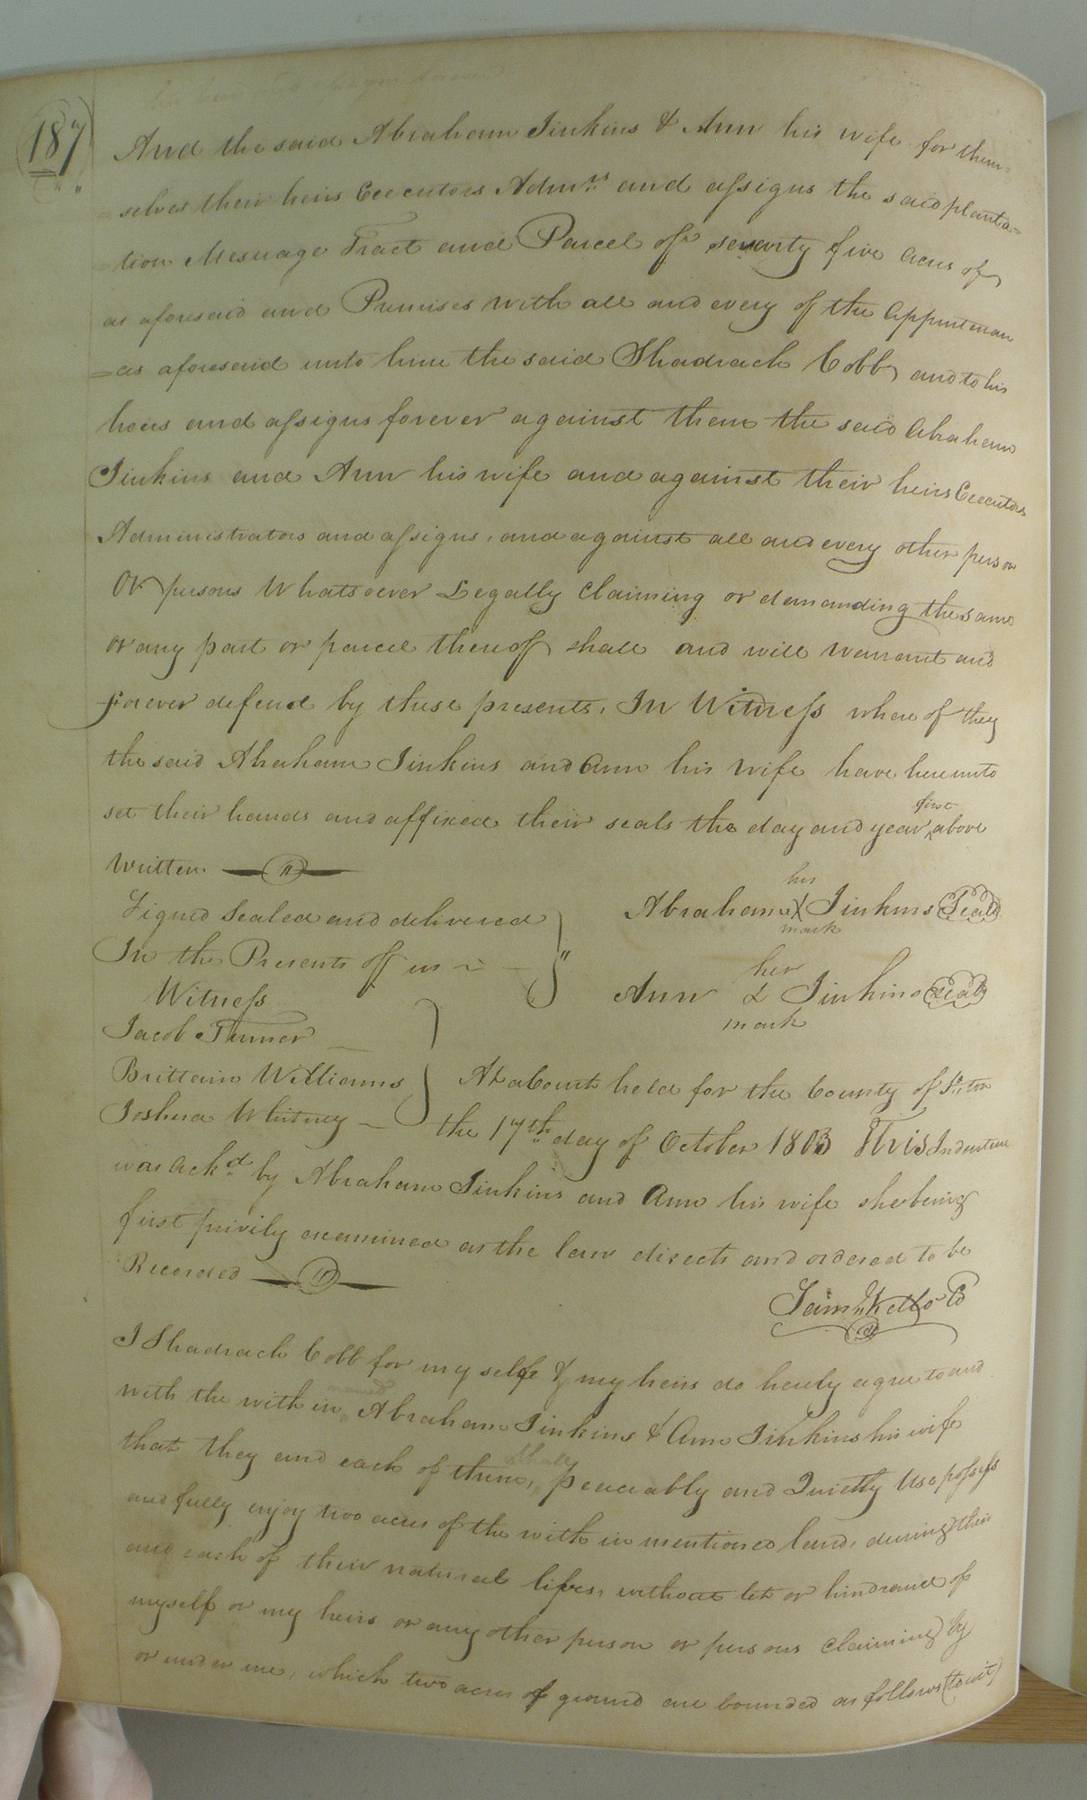 187
And the said Abraham Jinkins & Ann his wife for them-
selves their heirs Executors Admrs. and assigns the said planta-
tion Messuage Tract and Parcel of seventy five acres of
as aforesaid and Premises with all and every of the appurtenan
=as aforesaid unto him the said Shadrach Cobb and to his
heirs and assigns forever against them the said Abraham
Jinkins and Ann his wife and against their heirs Executors
Administrators and assigns, and against all and every other person
Or persons Whatsoever Legally Claiming or demanding the same
or any part or parcel thereof shall and will warrant and
forever defend by these presents. In Witness whereof they
the said Abraham Jinkins and Ann his wife have hereunto
set their hands and affixed their seals the day and year first above
Written.
Signed Sealed and delivered
In the Presents off us
Witness
Jacob Turner
Brittain Williams
Joshua Whitney
his
Abraham X Jinkins Seal
mark
her
Ann & Jinkins Seal
mark
At a Court held for the County of
the 17th day of October 1803 This Indenture
was Ackd. by Abraham Jinkins and Ann his wife she being
first privily examined as the law directs and ordered to be
Recorded
Saml Kello
I Shadrach Cobb for my self & my heirs do hereby agree to and
with the with in named Abraham Jinkins & Ann Jinkins his wife
that they and each of them, shall peaceably and Quietly Use possess
and fully enjoy two acres of the with in mentioned land, during their
and each of their natural lifes, without let or hindrance of
myself or my heirs or any other person or persons claiming by
or under me, which two acres of ground are bounded as follows (to wit)